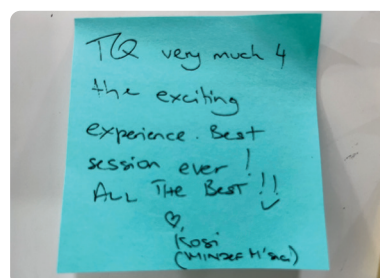 TQ very much 4
the exciting
experience. Best
session ever!
ALL THE BEST!!
Kosi
(MINDEF M'sia)